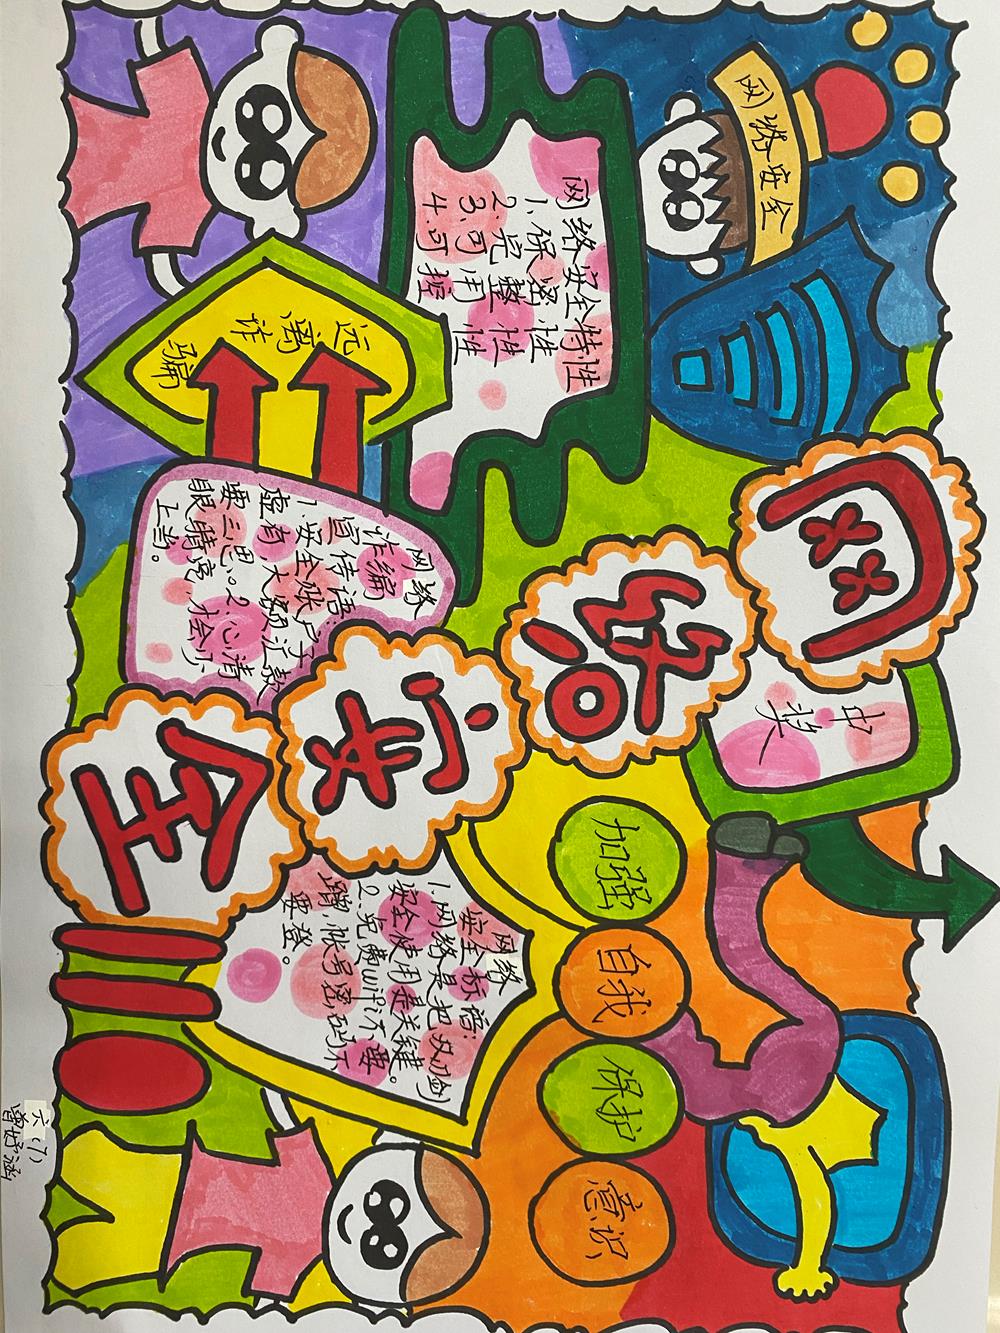 网络安全
网络安全!
中奖
网络安全特性
1.保密性
2.完整性
3.可用性
4.可控性
加强
自我
保护
意识
远
离
诈
骗
网络
诈编
宣传语:
1.安全账户子
虚有,大额汇款
要三思。2.心清
眼睛亮,才会少
上当。
网络
安全标语:
1.网络是把双刃剑
安全使用是关键。
2.免费wifi不要
蹭,帐号密码不
要登。
六(1)